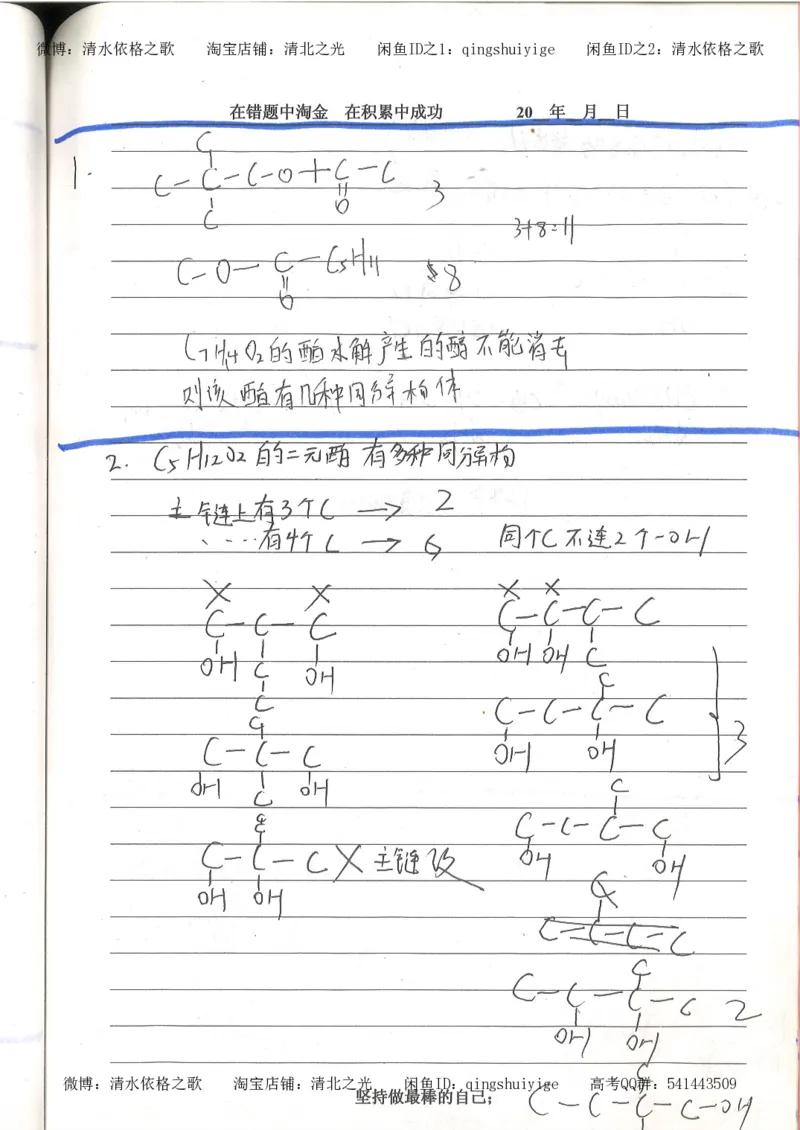 微博：清水依格之歌 淘宝店铺：清北之光 闲鱼ID之1：qingshuiyige 闲鱼ID之2：清水依格之歌
在错题中淘金 在积累中成功 20__年__月__日
1.
C
C-C-C-O+C-C 3
C O
3+8=11
C-O-C-C5H11 8
O
C7H14O2的酯水解产生的醇不能消去
则该酯有几种同分异构体
2. C5H12O2的二元醇 有多种同分异构
主链上有3个C → 2
····有4个C → 6 同个C不连2个-OH
X X X X
C-C-C C-C-C-C
OH C OH OH OH C
C C
C-C-C-C
C OH OH 3
C-C-C
OH C OH C
C-C-C-C
C OH OH
C-C-C X 主链改
OH OH
C
C-C-C-C
C
C-C-C-C 2
OH OH
C
C-C-C-C-OH
微博：清水依格之歌 淘宝店铺：清北之光 闲鱼ID：qingshuiyige 高考QQ群：541443509
坚持做最棒的自己；